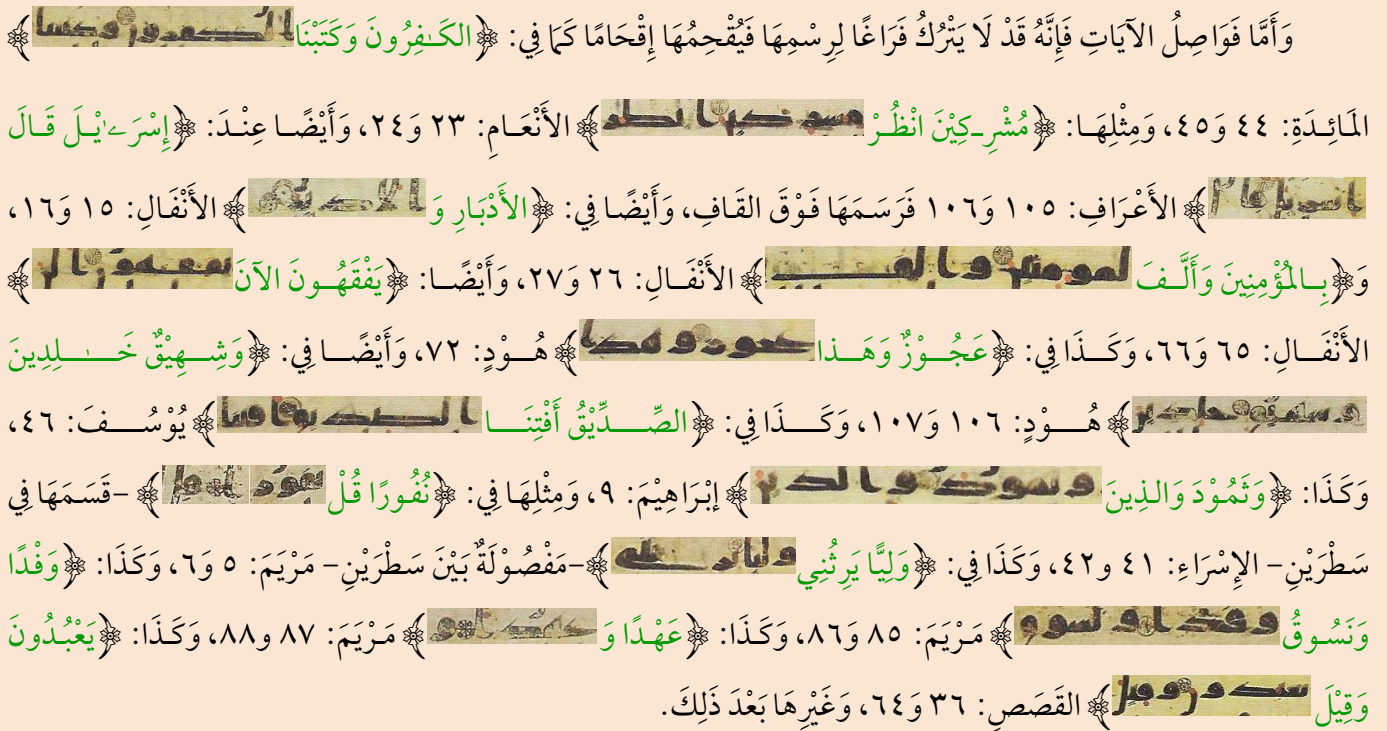 وَأَمَّا فَوَاصِلُ الآيَاتِ فَإِنَّهُ قَدْ لَا يَتْرُكُ فَرَاغًا لِرِسْمِهَا فَيُقْحِمُهَا إِقْحَامًا كَمَا فِي: ﴿الكَـٰفِرُونَ وَكَتَبْنَا﴾
المَائِـدَةِ: ٤٤ وَ٤٥، وَمِثْلِهَـا: ﴿مُشْرِـكِيْنَ انْظُـرْ﴾ الأَنْعَـامِ: ٢٣ وَ٢٤، وَأَيْضًـا عِنْـدَ: ﴿إِسْرَءِيْـلَ قَـالَ
﴾ الأَعْرَافِ: ١٠٥ وَ١٠٦ فَرَسَـمَهَا فَـوْقَ القَـافِ، وَأَيْضًـا فِي: ﴿الأَدْبَـارِ وَ﴾ الأَنْفَـالِ: ١٥ وَ١٦،
وَ﴿بِـالمُؤْمِنِينَ وَأَلَّـفَ﴾ الأَنْفَـالِ: ٢٦ وَ٢٧، وَأَيْضًـا: ﴿يَفْقَهُـونَ الآنَ﴾
الأَنْفَـالِ: ٦٥ وَ٦٦، وَكَـذَا فِي: ﴿عَجُـوْزٌ وَهَـذا﴾ هُـوْدٍ: ٧٢، وَأَيْضًـا فِي: ﴿وَشِـهِيْقٌ خَـٰلِدِينَ
﴾ هُـوْدٍ: ١٠٦ وَ١٠٧، وَكَـذَا فِي: ﴿الصِّـدِّيْقُ أَفْتِنَـا﴾ يُوْسُـفَ: ٤٦،
وَكَذَا: ﴿وَثَمُوْدَ وَالذِينَ﴾ إِبْرَاهِيْمَ: ٩، وَمِثْلِهَا فِي: ﴿نُفُورًا قُلْ﴾ -قَسَمَهَا فِي
سَطْرَيْنِ- الإِسْرَاءِ: ٤١ و٤٢، وَكَذَا فِي: ﴿وَلِيًّا يَرِثُنِي﴾-مَفْصُوْلَةٌ بَيْنَ سَطْرَيْنِ- مَرْيَمَ: ٥ وَ٦، وَكَذَا: ﴿وَفْدًا
وَنَسُـوقُ﴾ مَـرْيَمَ: ٨٥ وَ٨٦، وَكَـذَا: ﴿عَهْـدًا وَ﴾ مَـرْيَمَ: ٨٧ و٨٨، وَكَـذَا: ﴿يَعْبُـدُونَ
وَقِيْلَ﴾ القَصَصِ: ٣٦ وَ٦٤، وَغَيْرِهَا بَعْدَ ذَلِكَ.